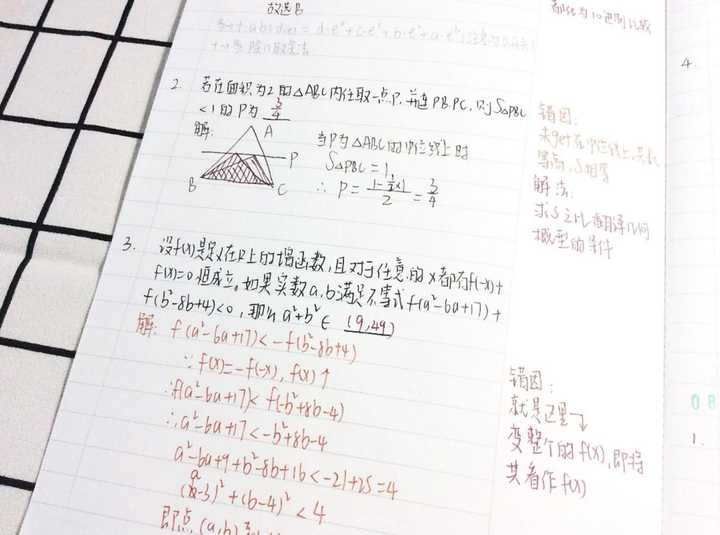 故选B
2. 若在面积为2的△ABC内任取一点P,并连PB,PC,则S△PBC
<1的P为 3/4
解:
A
P
B
C
当P为△ABC的中位线上时
S△PBC=1,
∴ P=
2
= 3/4
3. 设f(x)是定义在R上的增函数,且对于任意的x都有f(-x)+
f(x)=0恒成立,如果实数a,b满足不等式f(a²-6a+17)+
f(b²-8b+4)<0,那么a²+b²∈ (9,49)
解: f(a²-6a+17)<-f(b²-8b+4)
∵f(x)=-f(-x), f(x)↑
∴f(a²-6a+17)<f(-b²+8b-4)
∴a²-6a+17<-b²+8b-4
a²-6a+9+b²-8b+16<-21+25=4
(a-3)²+(b-4)²<4
即点(a,b)
进制比较
错因:
未get在中位线上
等高,S相等
解法:
求S之比,翻译几何
概型的条件
错因:
就是这里
变整个的f(x),即将
其看作f(x)
4.
08
1.